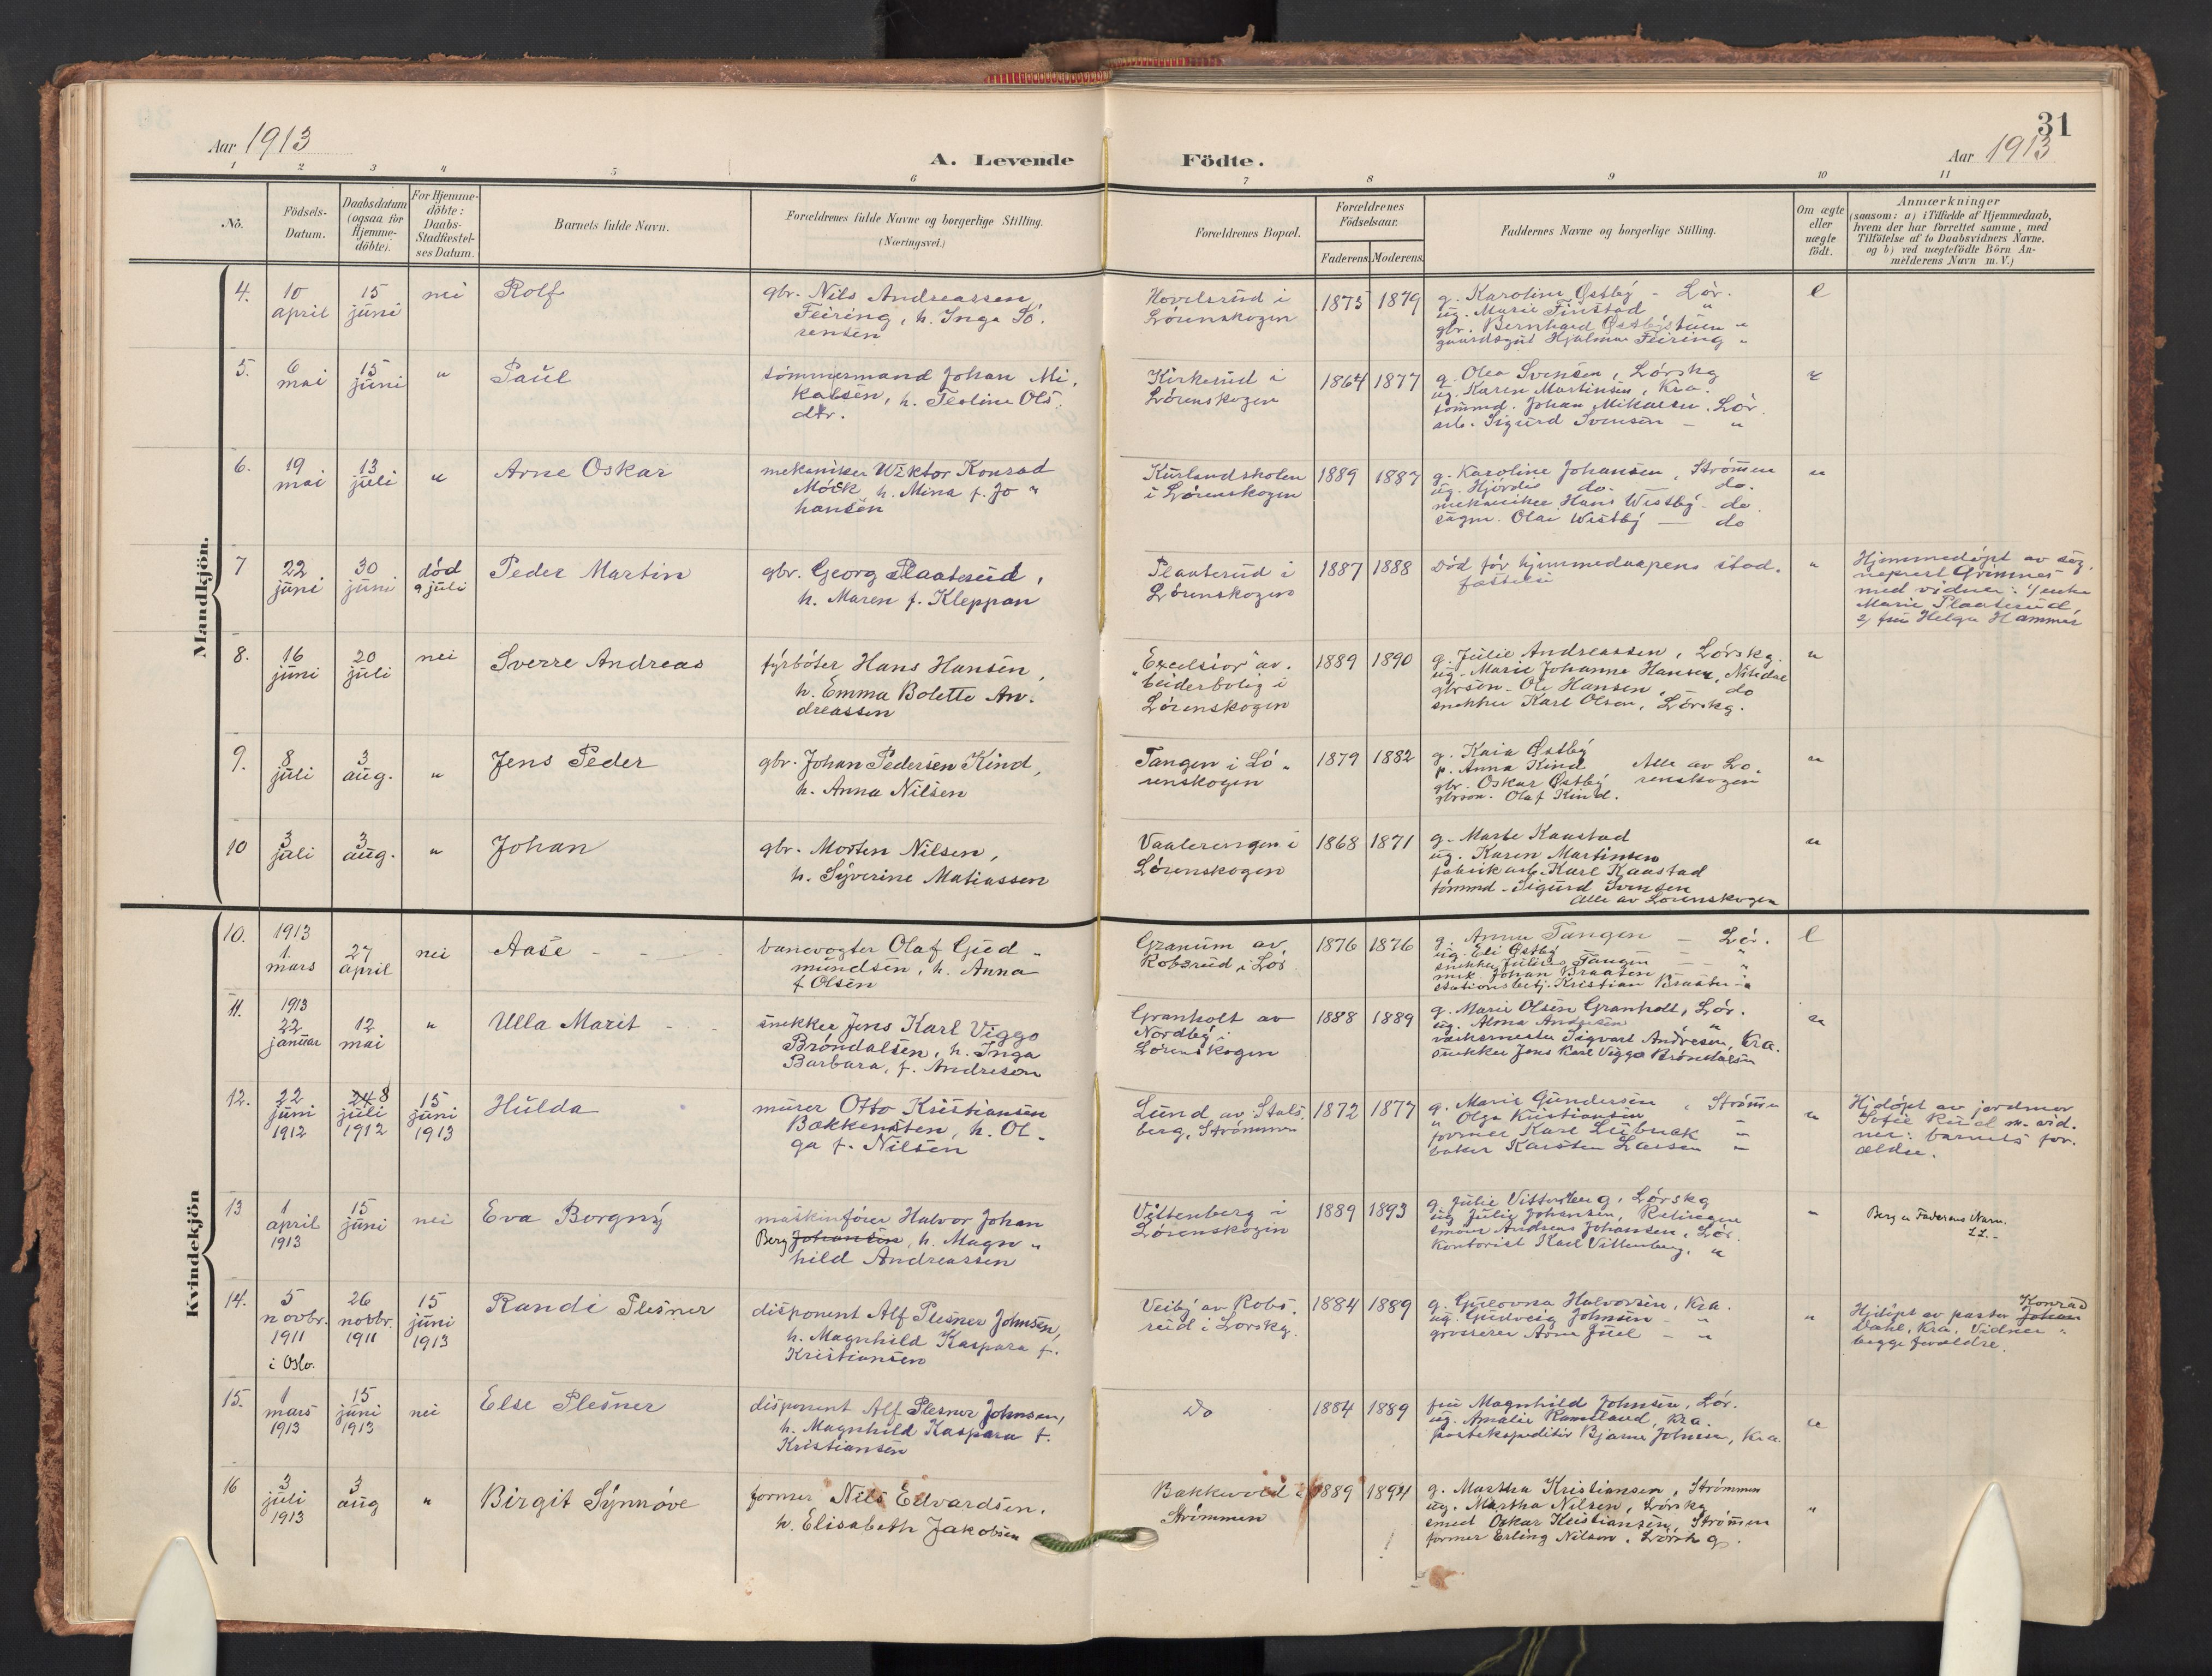 31
Aar 1913
Aar 1913
A. Levende Födte.
1 2 3 4 5 6 7 8 9 10 11
No.
Födsels-
Datum.
Daabsdatum
(ogsaa for
Hjemme-
döbte).
For Hjemme-
döbte:
Daabs-
Stadfæstel-
ses Datum.
Barnets fulde Navn.
Forældrenes fulde Navne og borgerlige Stilling.
(Næringsvei.)
Forældrenes Bopæl.
Forældrenes
Födselsaar.
Faderens. Moderens.
Faddernes Navne og borgerlige Stilling.
Om ægte
eller
uægte
födt.
Anmærkninger
(saasom: a) i Tilfælde af Hjemmedaab,
hvem der har forrettet samme, med
Tilföielse af to Daabsvidners Navne.
og b) ved uægtefödte Börn An-
melderens Navn m. V.)
Mandkjön.
4.
10
april
15
juni
nei
Rolf
gbr. Nils Andreassen
Feiring, h. Inga Sö.
rensen
Hovelsrud i
Lørenskogen
1875 1879
g. Karoline Østby - Lör.
ug. Marie Finstad "
gbr. Bernhard Østbystuen "
gaardsgut Hjalmar Feiring "
e
5.
6
mai
15
juni
"
Paul
tømmermand Johan Mi.
kalsen, h. Teoline Ols.
dtr.
Kirkerud i
Lørenskogen
1864 1877
g. Olea Svensen, Lörskg
ug. Karen Martinsen, Kra.
tømmd. Johan Mikalsen. Lör.
arb. Sigurd Svensen - "
6.
19
mai
13
juli
"
Arne Oskar
mekaniker Wiktor Konrad
Möck h. Mina f. Jo "
hansen
Kurlandskolen
i Lørenskogen
1889 1887
g. Karoline Johansen, Strömen
ug. Hjördis do. - do.
mekaniker Hans Westby - do.
sagm. Olai Westby - do
"
7
22
juni
30
juni
död
9 juli
Peder Martin
gbr. Georg Plaaterud,
h. Maren f. Kleppan
Plaaterud i
Lørenskogen
1887 1888
Död för hjemmedaapens stad.
festelse
"
Hjemmedöpt av sog.
neprest Grimnes
med vidner: 1/ enke
Marie Plaaterud,
2/ fru Helga Hammer
8.
16
juni
20
juli
nei
Sverre Andreas
fyrböter Hans Hansen,
h. Emma Bolette An.
dreassen
"Excelsior" ar.
beiderbolig i
Lørenskogen
1889 1890
g. Julie Andreassen, Lörskg.
ug. Marie Johanne Hansen, Nitedal
gbrsön. Ole Hansen, - do
snekker Karl Olsen, Lörskg.
"
9.
8
juli
3
aug.
"
Jens Peder
gbr. Johan Pedersen Kind,
h. Anna Nilsen
Tangen i Lö "
renskogen
1879 1882
g. Kaia Østby
p. Anna Kind
gbr. Oskar Østby
gbrson. Olaf Kind.
Alle av Lö.
renskogen
"
10
3
juli
3
aug.
"
Johan
gbr. Morten Nilsen,
h. Syverine Matiassen
Vaalerengen i
Lørenskogen
1868 1871
g. Marte Kaastad
ug. Karen Martinsen
fabrikarb. Karl Kaastad
tömmd. Sigurd Svensen
Alle av Lørenskogen
"
Kvindekjön
10.
1913
1.
mars
27
april
nei
Aase
banevogter Olaf Gud "
mundsen, h. Anna
f Olsen
Granum av
Robsrud, i Lör
1876 1876
g. Anna Tangen - Lör.
ug. Eli Østby "
snekker Julius Tangen - "
mek. Johan Braaten "
stationsbetj. Kristian Braaten "
e
11.
1913
22
januar
12
mai
"
Ulla Marit
snekker Jens Karl Viggo
Bröndalsen, h. Inga
Barbara, f. Andresen
Granholt av
Nordby i
Lørenskogen
1888 1889
g. Marie Olsen Granholt, Lör.
ug. Alma Andresen "
verkmester Sigvart Andresen, Kra.
snekker Jens Karl Viggo Bröndalsen
"
12.
22
juni
1912
24 8
juli
1912
15
juni
1913
Hulda
murer Otto Kristiansen
Bakkensten, h. Ol.
ga f. Nilsen
Lund av Stals.
berg, Strömmen
1872 1877
g. Marie Gundersen, Strömen
" Olga Kristiansen "
former Karl Lübeck "
baker Karsten Larsen "
"
Hjdöpt av jordmor
Sofie Ruud m. vid.
ner: barnets for.
ældre.
13
1
april
1913
15
juni
nei
Eva Borgny
maskinförer Halvor Johan
Berg Johansen, h. Magn "
hild Andreassen
Vittenberg i
Lørenskogen
1889 1893
g. Julie Vittenberg, Lörskg
ug. Julie Johansen, Rælingen
smörer Andreas Johansen, Lör.
Kontorist Karl Vittenberg, "
"
Berg er Faderens Navn.
14.
5
novbr.
1911
i Oslo.
26
novbr.
1911
15
juni
1913
Randi Plesner
disponent Alf Plesner Johnsen,
h. Magnhild Kaspara f.
Kristiansen
Veiby av Robs.
rud i Lorskg.
1884 1889
g. Gulovna Halvorsen, Kra.
ug. Gudveig Johnsen - "
grosserer Arne Juel - "
"
Hjdöpt av pastor Johan Konrad
Dahl, Kra. Vidner "
begge forældre.
15.
1
mars
1913
15
juni
1913
nei
Else Plesner
disponent Alf Plesner Johnsen,
h. Magnhild Kaspara f.
Kristiansen
Do
1884 1889
fru Magnhild Johnsen, Lör.
ug. Amalie Ramsland, Kra.
postekspeditör Bjarne Johnsen, Kra.
"
16
3
juli
1913
3
aug
"
Birgit Synnöve
former Nils Edvardsen.
h. Elisabeth Jakobsen
Bakkevold i
Strömmen
1889 1894
g. Martha Kristiansen, Strömmen
ug. Martha Nilsen, Lörskg
smed Oskar Kristiansen, Strömen
former Erling Nilsen, Lörskg.
"